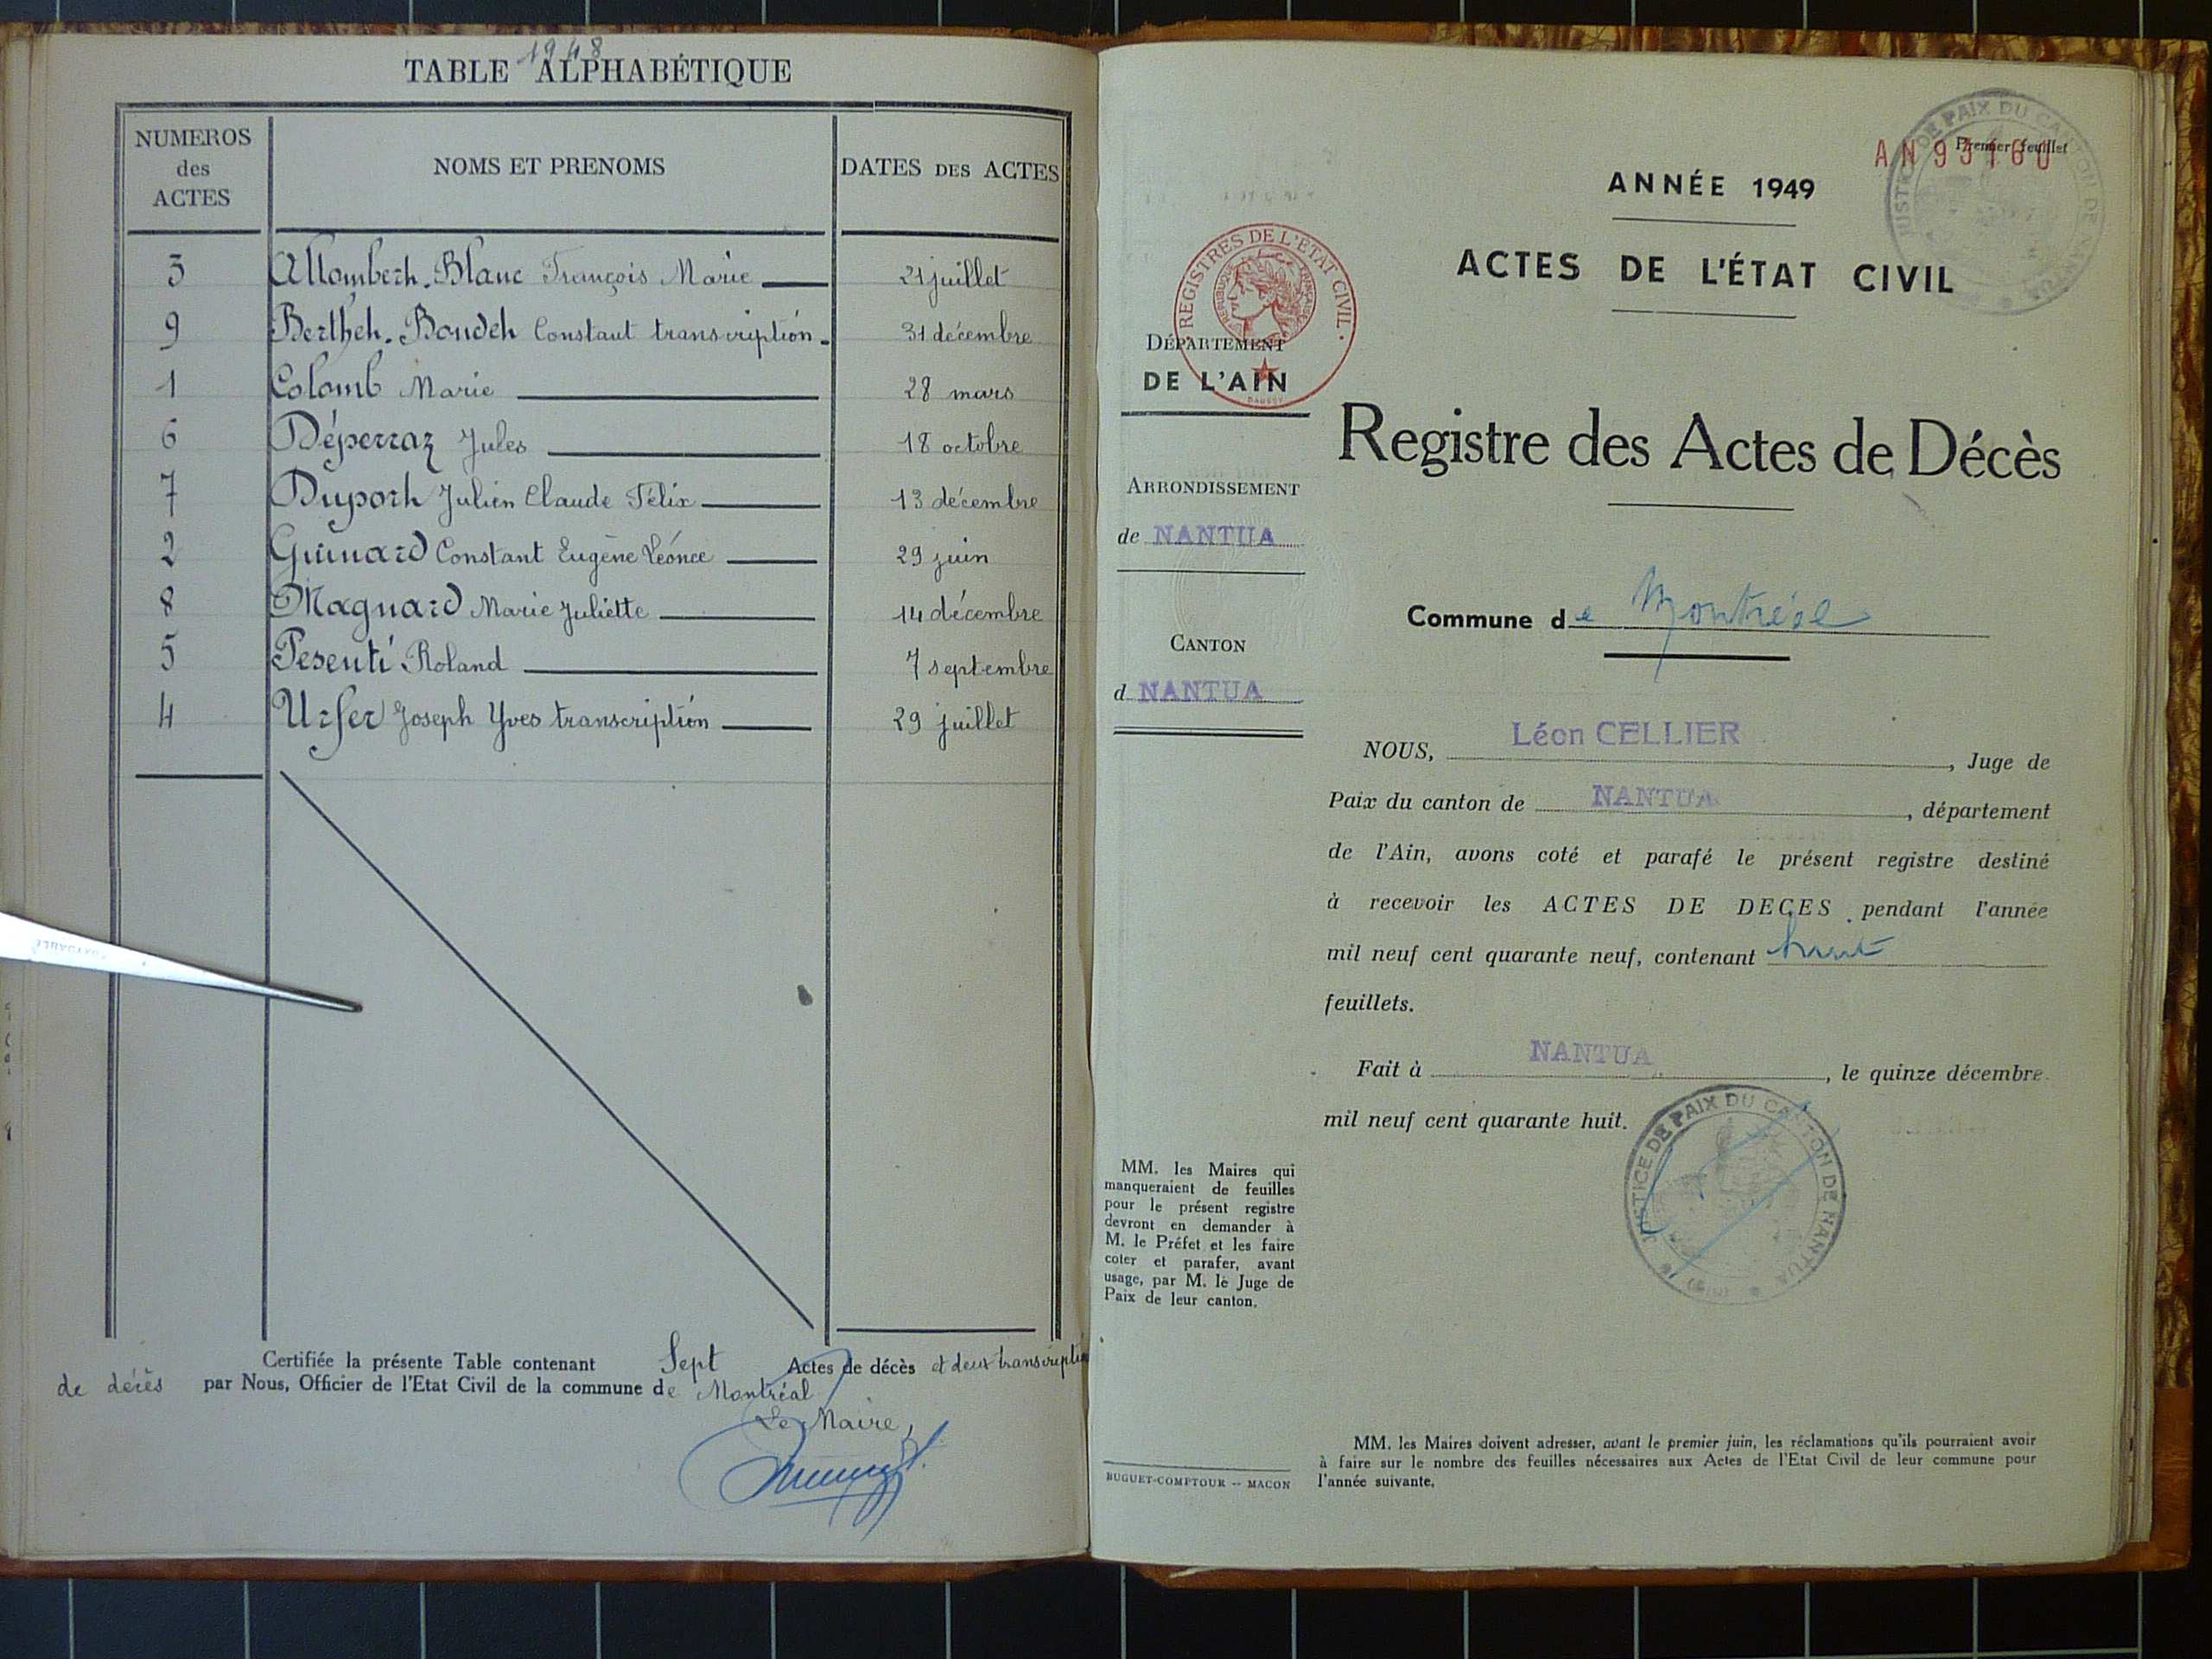 1948
TABLE ALPHABÉTIQUE
NUMEROS des ACTES
NOMS ET PRENOMS
DATES DES ACTES
3 Allombert-Blanc François Marie 21 juillet
9 Berthet-Bondet Constant transcription 31 décembre
1 Colomb Marie 28 mars
6 Déperraz Jules 18 octobre
7 Duport Julien Claude Félix 13 décembre
2 Guinard Constant Eugène Léonce 29 juin
8 Magnard Marie Juliette 14 décembre
5 Pesenti Roland 7 septembre
4 Urfer Joseph Yves transcription 29 juillet
Certifiée la présente Table contenant Sept Actes de décès et deux transcription
de décès par Nous, Officier de l'Etat Civil de la commune de Montréal
Le Maire,
Premier feuillet
JUSTICE DE PAIX DU CANTON DE NANTUA
ANNÉE 1949
ACTES DE L'ÉTAT CIVIL
REGISTRES DE L'ÉTAT CIVIL
RÉPUBLIQUE FRANÇAISE
DÉPARTEMENT
DE L'AIN
Registre des Actes de Décès
ARRONDISSEMENT
de NANTUA
Commune de Montréal
CANTON
d NANTUA
NOUS, Léon CELLIER, Juge de
Paix du canton de NANTUA, département
de l'Ain, avons coté et parafé le présent registre destiné
à recevoir les ACTES DE DECES pendant l'année
mil neuf cent quarante neuf, contenant huit
feuillets.
Fait à NANTUA, le quinze décembre
mil neuf cent quarante huit.
JUSTICE DE PAIX DU CANTON DE NANTUA
MM. les Maires qui
manqueraient de feuilles
pour le présent registre
devront en demander à
M. le Préfet et les faire
coter et parafer, avant
usage, par M. le Juge de
Paix de leur canton.
BUGUET-COMPTOUR -- MACON
MM. les Maires doivent adresser, avant le premier juin, les réclamations qu'ils pourraient avoir
à faire sur le nombre des feuilles nécessaires aux Actes de l'Etat Civil de leur commune pour
l'année suivante.